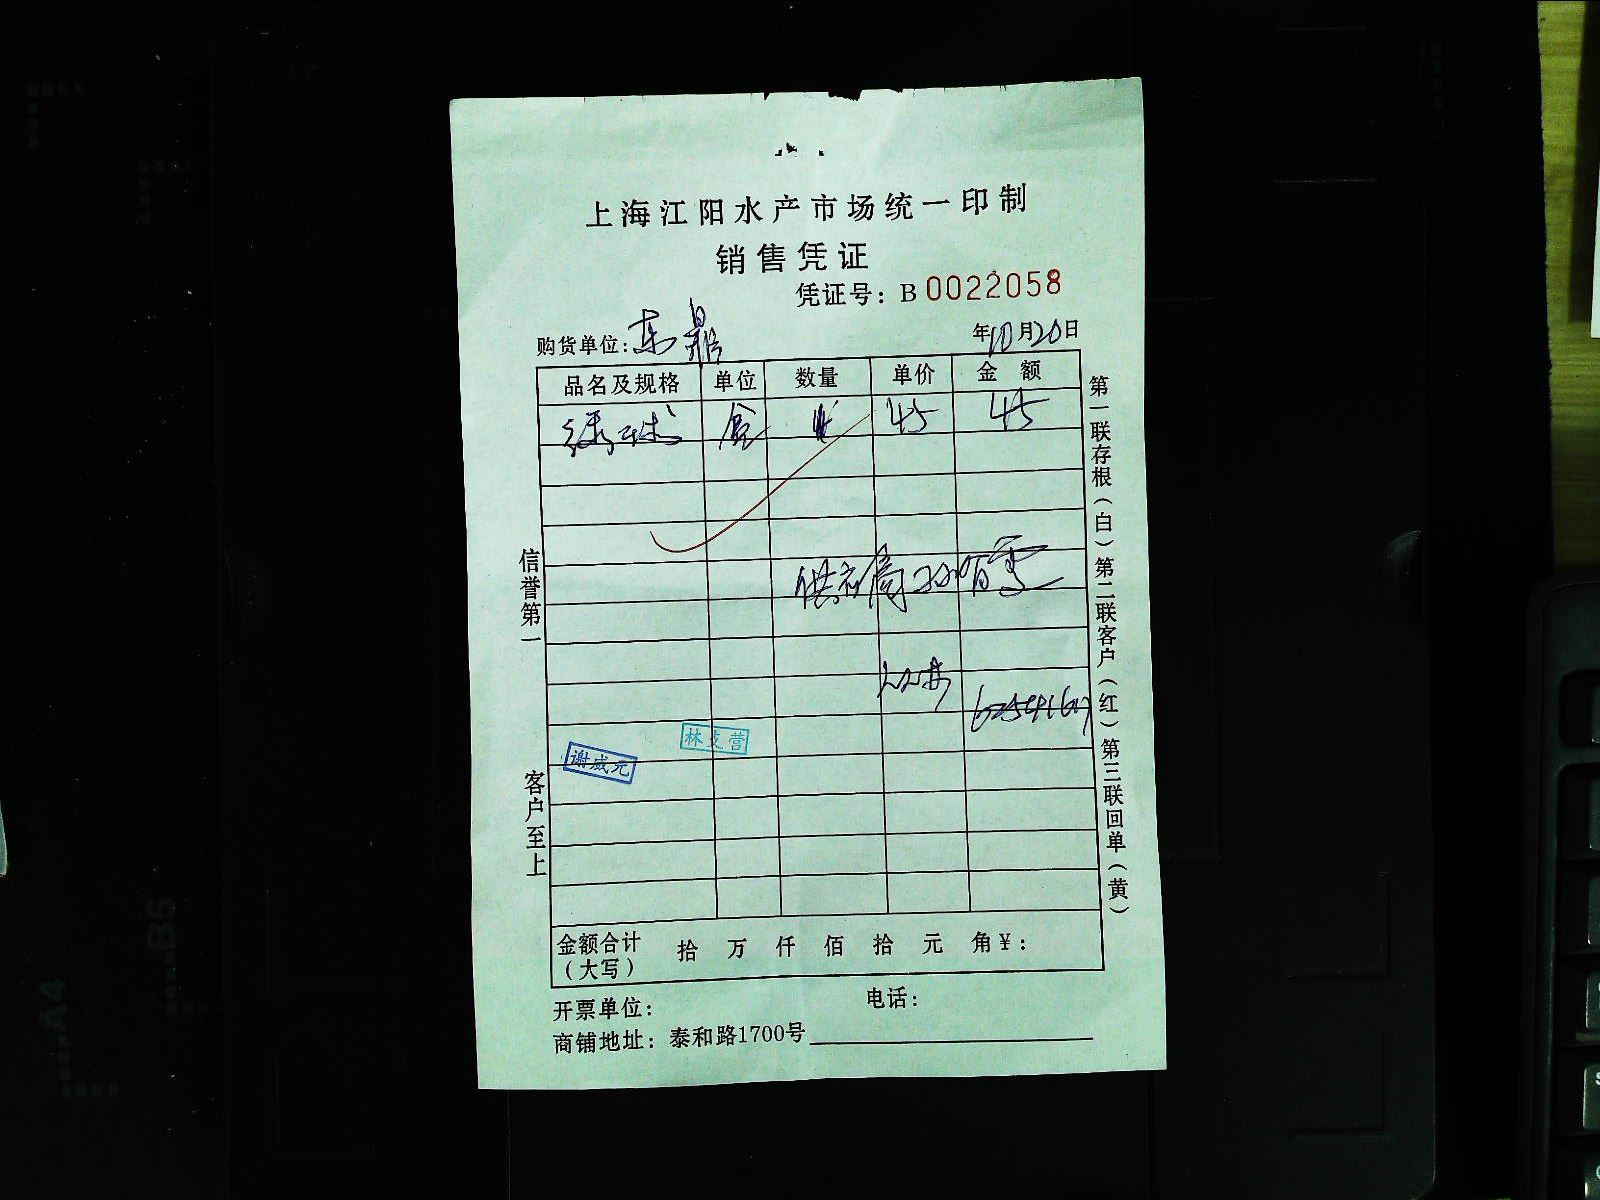 上海江阳水产市场统一印制
销售凭证
凭证号：B 0022058
购货单位：东鼎
年10月20日
品名及规格 单位 数量 单价 金额
盒 45 45
供应商
林支营
谢威元
金额合计（大写） 拾 万 仟 佰 拾 元 角 ¥：
开票单位： 电话：
商铺地址：泰和路1700号
信誉第一 客户至上
第一联存根（白） 第二联客户（红） 第三联回单（黄）
B5
A4